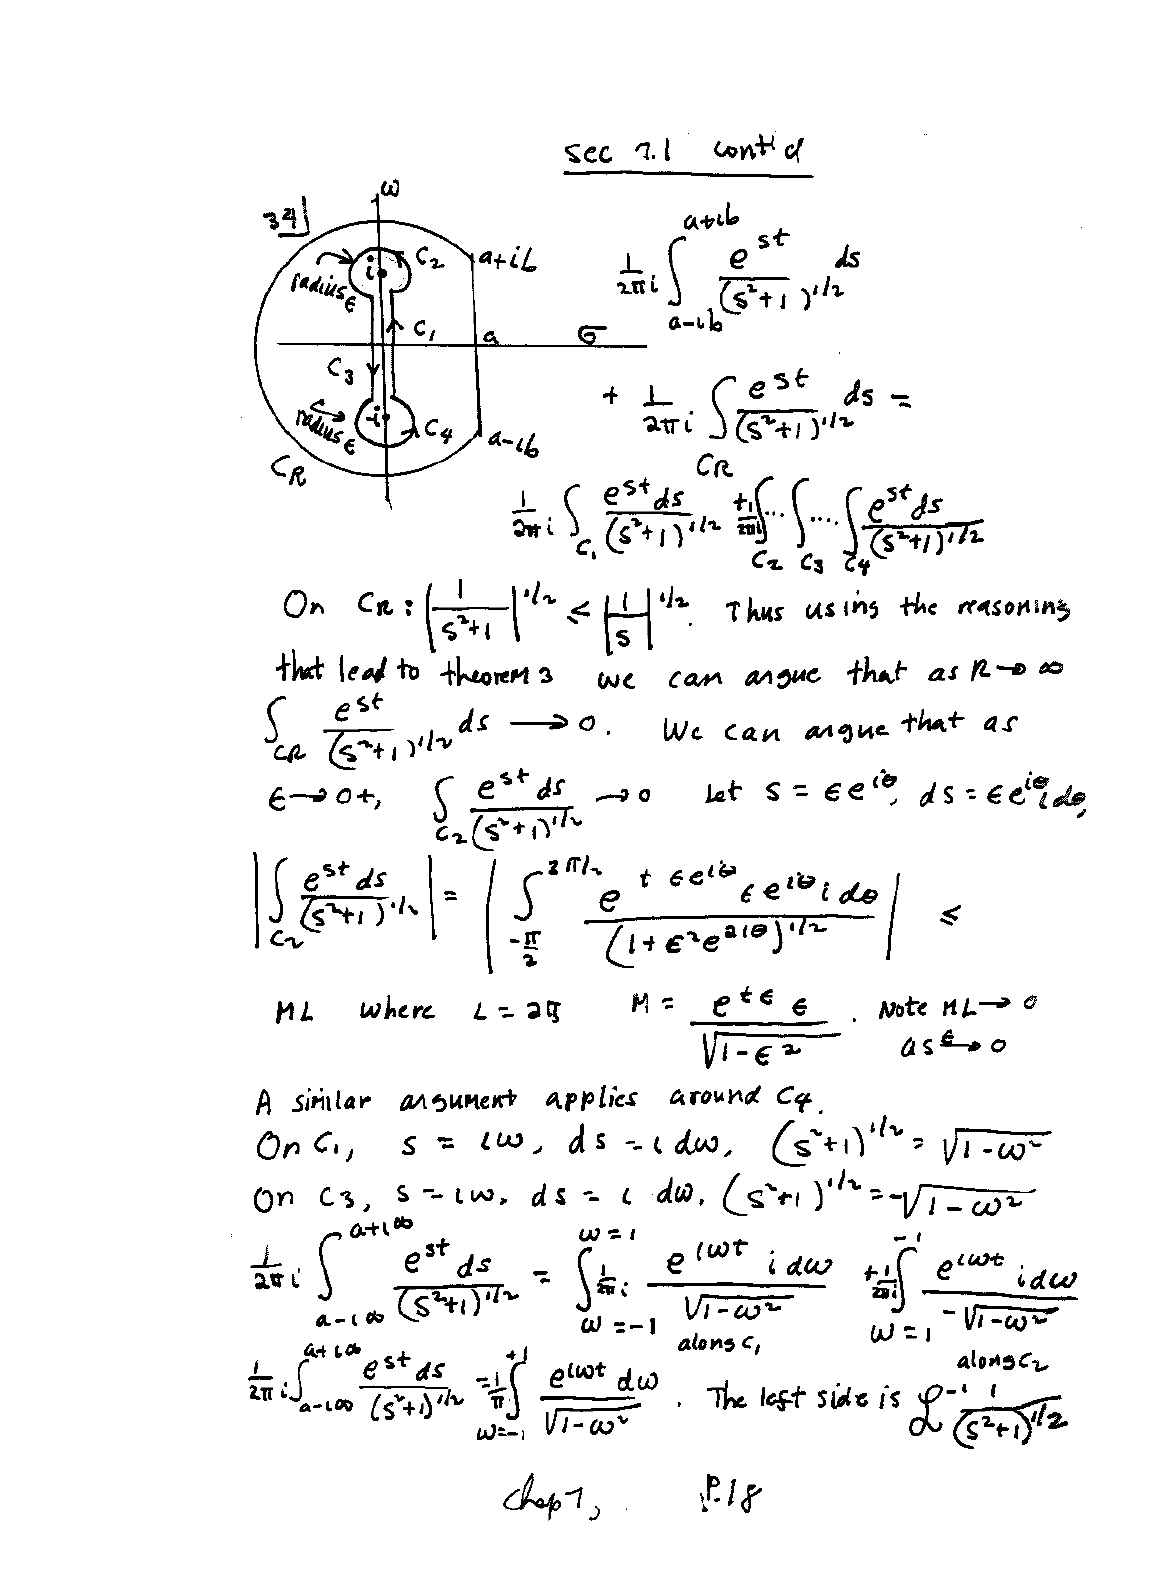 sec 7.1 cont'd
34
ω
C₂
a+ib
i
radius ε
C₁
a
σ
C₃
-i
radius ε
C₄
a-ib
C_R
1/2πi ∫_{a-ib}^{a+ib} e^{st}/(s²+1)^{1/2} ds
+ 1/2πi ∫_{C_R} e^{st}/(s²+1)^{1/2} ds =
1/2πi ∫_{C₁} e^{st} ds/(s²+1)^{1/2} + 1/2πi ∫_{C₂} ... ∫_{C₃} .... ∫_{C₄} e^{st} ds/(s²+1)^{1/2}
On C_R: |1/(s²+1)|^{1/2} ≤ |1/s|^{1/2}. Thus using the reasoning
that lead to theorem 3 we can argue that as R→∞
∫_{C_R} e^{st}/(s²+1)^{1/2} ds → 0. We can argue that as
ε→0+, ∫_{C₂} e^{st} ds/(s²+1)^{1/2} → 0 Let s = εe^{iθ}, ds = εe^{iθ} i dθ,
|∫_{C₂} e^{st} ds/(s²+1)^{1/2}| = |∫_{-π/2}^{3π/2} e^{t εe^{iθ}} ε e^{iθ} i dθ/(1+ε²e^{2iθ})^{1/2}| ≤
ML where L = 2π M = e^{tε} ε/√(1-ε²). Note ML→0
as ε→0
A similar argument applies around C₄.
On C₁, s = iω, ds = i dω, (s²+1)^{1/2} = √(1-ω²)
On C₃, s = iω, ds = i dω, (s²+1)^{1/2} = -√(1-ω²)
1/2πi ∫_{a-i∞}^{a+i∞} e^{st} ds/(s²+1)^{1/2} = ∫_{ω=-1}^{ω=1} 1/2πi e^{iωt} i dω/√(1-ω²) + 1/2πi ∫_{ω=1}^{-1} e^{iωt} i dω/-√(1-ω²)
along C₁
along C₂
1/2πi ∫_{a-i∞}^{a+i∞} e^{st} ds/(s²+1)^{1/2} = 1/π ∫_{ω=-1}^{+1} e^{iωt} dω/√(1-ω²). The left side is ℒ^{-1} 1/(s²+1)^{1/2}
Chap 7, P.18